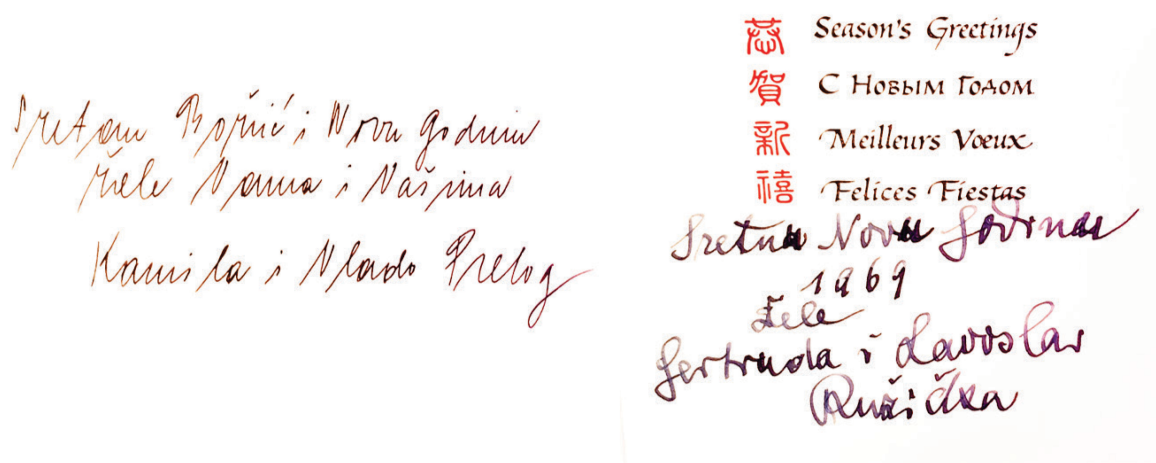 Sretan Božić i Novu Godinu
žele Vama i Vašima
Kamila i Vlado Prelog
恭賀新禧
Season's Greetings
С Новым Годом
Meilleurs Vœux
Felices Fiestas
Sretnu Novu Godinu
1969
žele
Gertruda i Lavoslav
Ružička